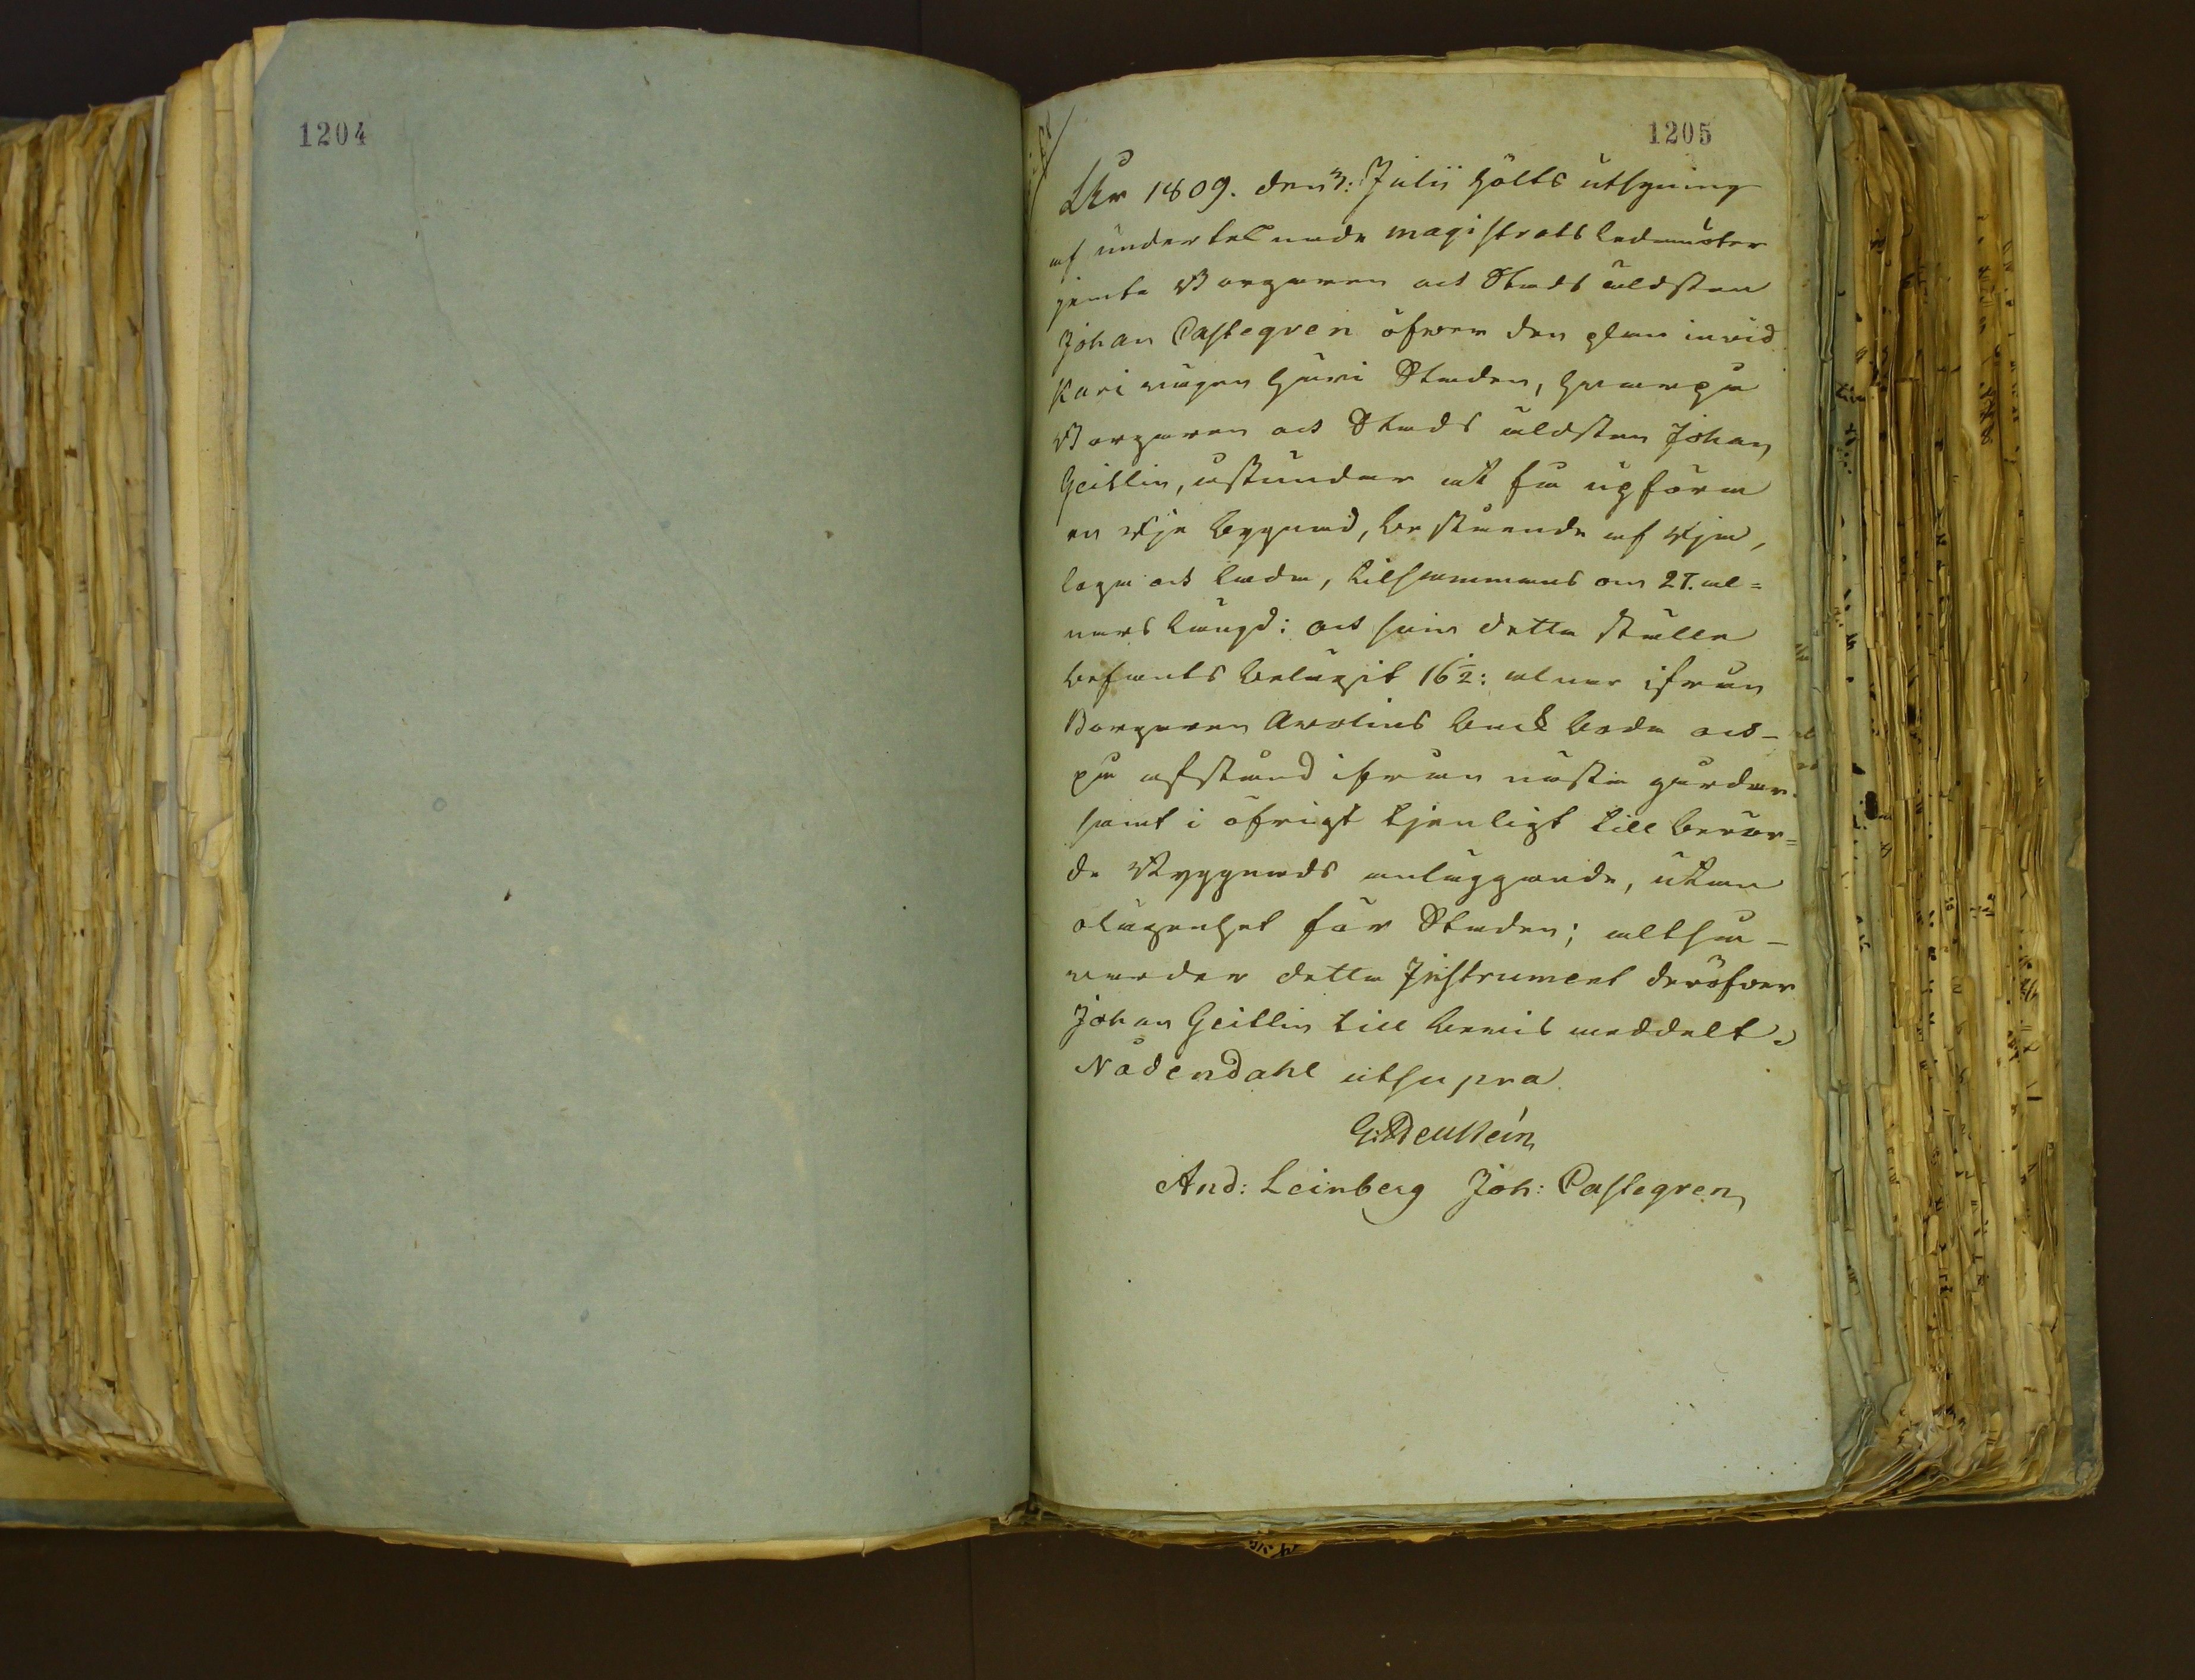 1204
1205
År 1809. den 3: Julii hölts utsyning
af undertecknade magistrats ledamöter
jemte Borgaren ock Stads äldsten
Johan Castegren öfwer den plan inwid
Kari wägen här i Staden, hwarpå
Borgaren ock Stads äldsten Johan
Geitlin, åstundar att få upföra
en Rje bygnad, bestående af Rja,
loga ock lada, tilsammans om 27. al=
nars längd: ock som detta ställe
befants belägit 16½: alnar ifrån
Borgaren Avolins bak bode ock
på afstånd ifrån nästa gårdar.
samt i öfrigt tjenligt till berör=
de Byggnads anläggande, utan
olägenhet för Staden; altså
warder detta Instrument deröfwer
Johan Geitlin till bewis meddelt.
Nådendahl utsupra.
And: Leinberg Joh: Castegren